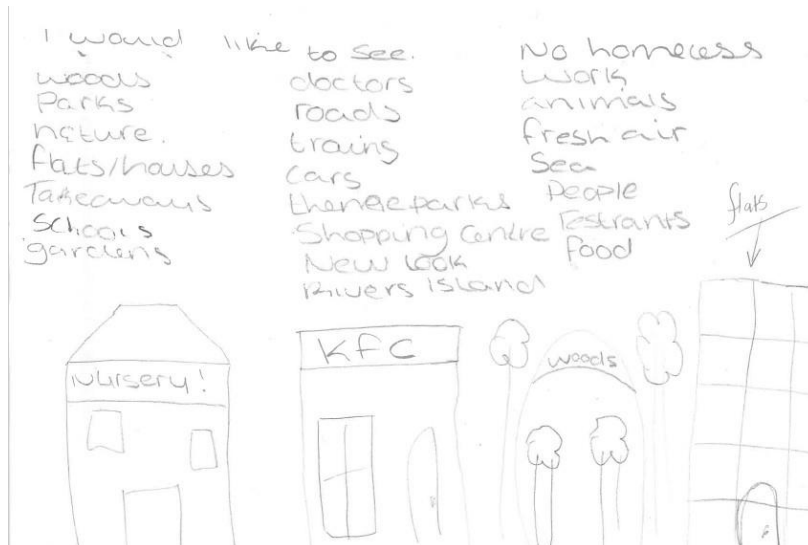 I would like to see.
woods
Parks
nature.
flats/houses
Takeaways
Schools
gardens
doctors
roads
trains
cars
themeparks
Shopping Centre
New look
Rivers Island
No homeless
work
animals
fresh air
Sea
People
restrants
food
flats
Nursery!
KFC
woods